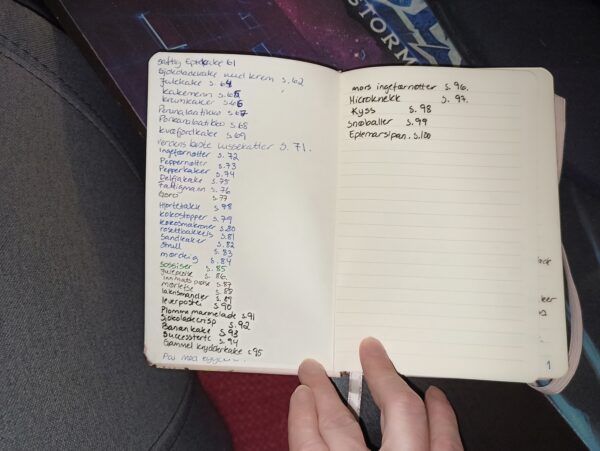 STORM
saftig Eplekake 61
Sjokoladekake med krem s. 62
Julekake s. 64
kakemenn s. 65
krumkaker s. 66
Perunalaatikko s. 67
Porkanalaatikko s. 68
kvæfjordkake s. 69
verdens beste lussekatter s. 71.
Ingefærnøtter s. 72
Peppernøtter s. 73
Pepperkaker s. 74
Delfiakake s. 75
Fattigmann s. 76
Goro s. 77
Hjortetakk s. 78
kokostopper s. 79
kokosmakroner s. 80
rosettbakkels s. 81
Sandkaker s. 82
Smull s. 83
mørdeig s. 84
Sossiser s. 85
Julepølse s. 86.
Innmatspølse s. 87
mørletse s. 88
lakrismandler s. 89
leverpostei s. 90
Plomme marmelade s. 91
Sjokoladecrisp s. 92
Banankake s. 93
Suksessterte s. 94
Gammel krydderkake s. 95
Pai med
mors ingefærnøtter s. 96.
Microknekk s. 97.
Kyss s. 98
Snøballer s. 99
Eplemarsipan. s. 100
1